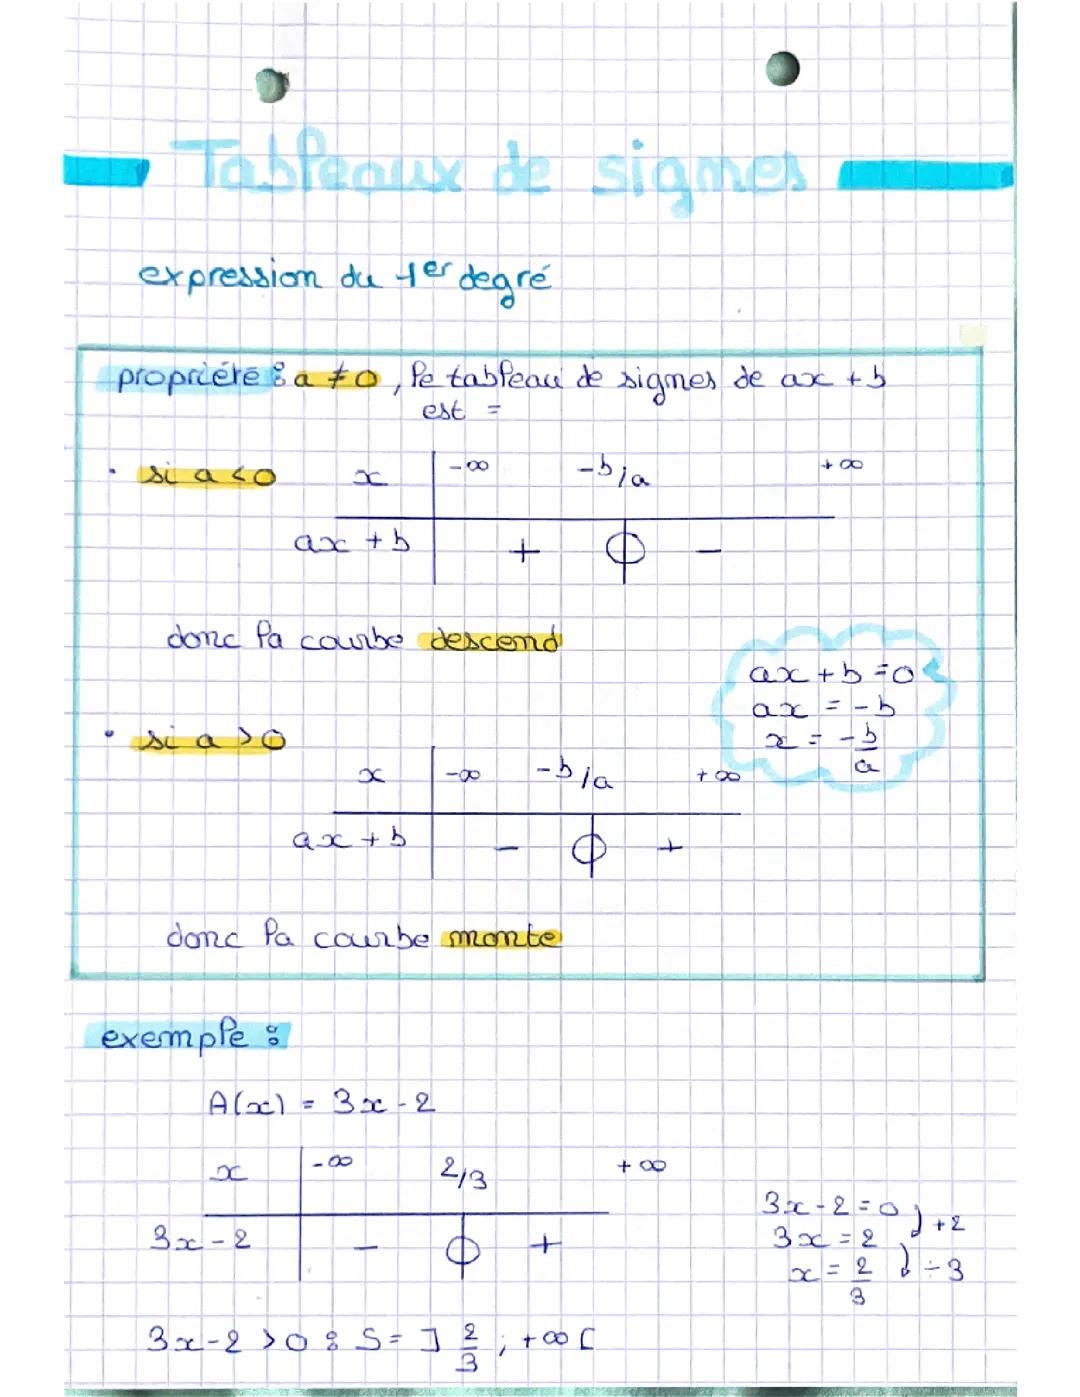 Tableaux de signes
expression du 1er degré
propriété : a ≠ 0, le tableau de signes de ax + b
est =
• si a < 0
x -∞ -b/a +∞
ax + b + 0 -
donc la courbe descend
ax + b = 0
ax = -b
x = -b/a
• si a > 0
x -∞ -b/a +∞
ax + b - 0 +
donc la courbe monte
exemple :
A(x) = 3x - 2
x -∞ 2/3 +∞
3x - 2 - 0 +
3x - 2 = 0
+2
3x = 2
÷3
x = 2/3
3x - 2 > 0 : S = ] 2/3 ; +∞ [